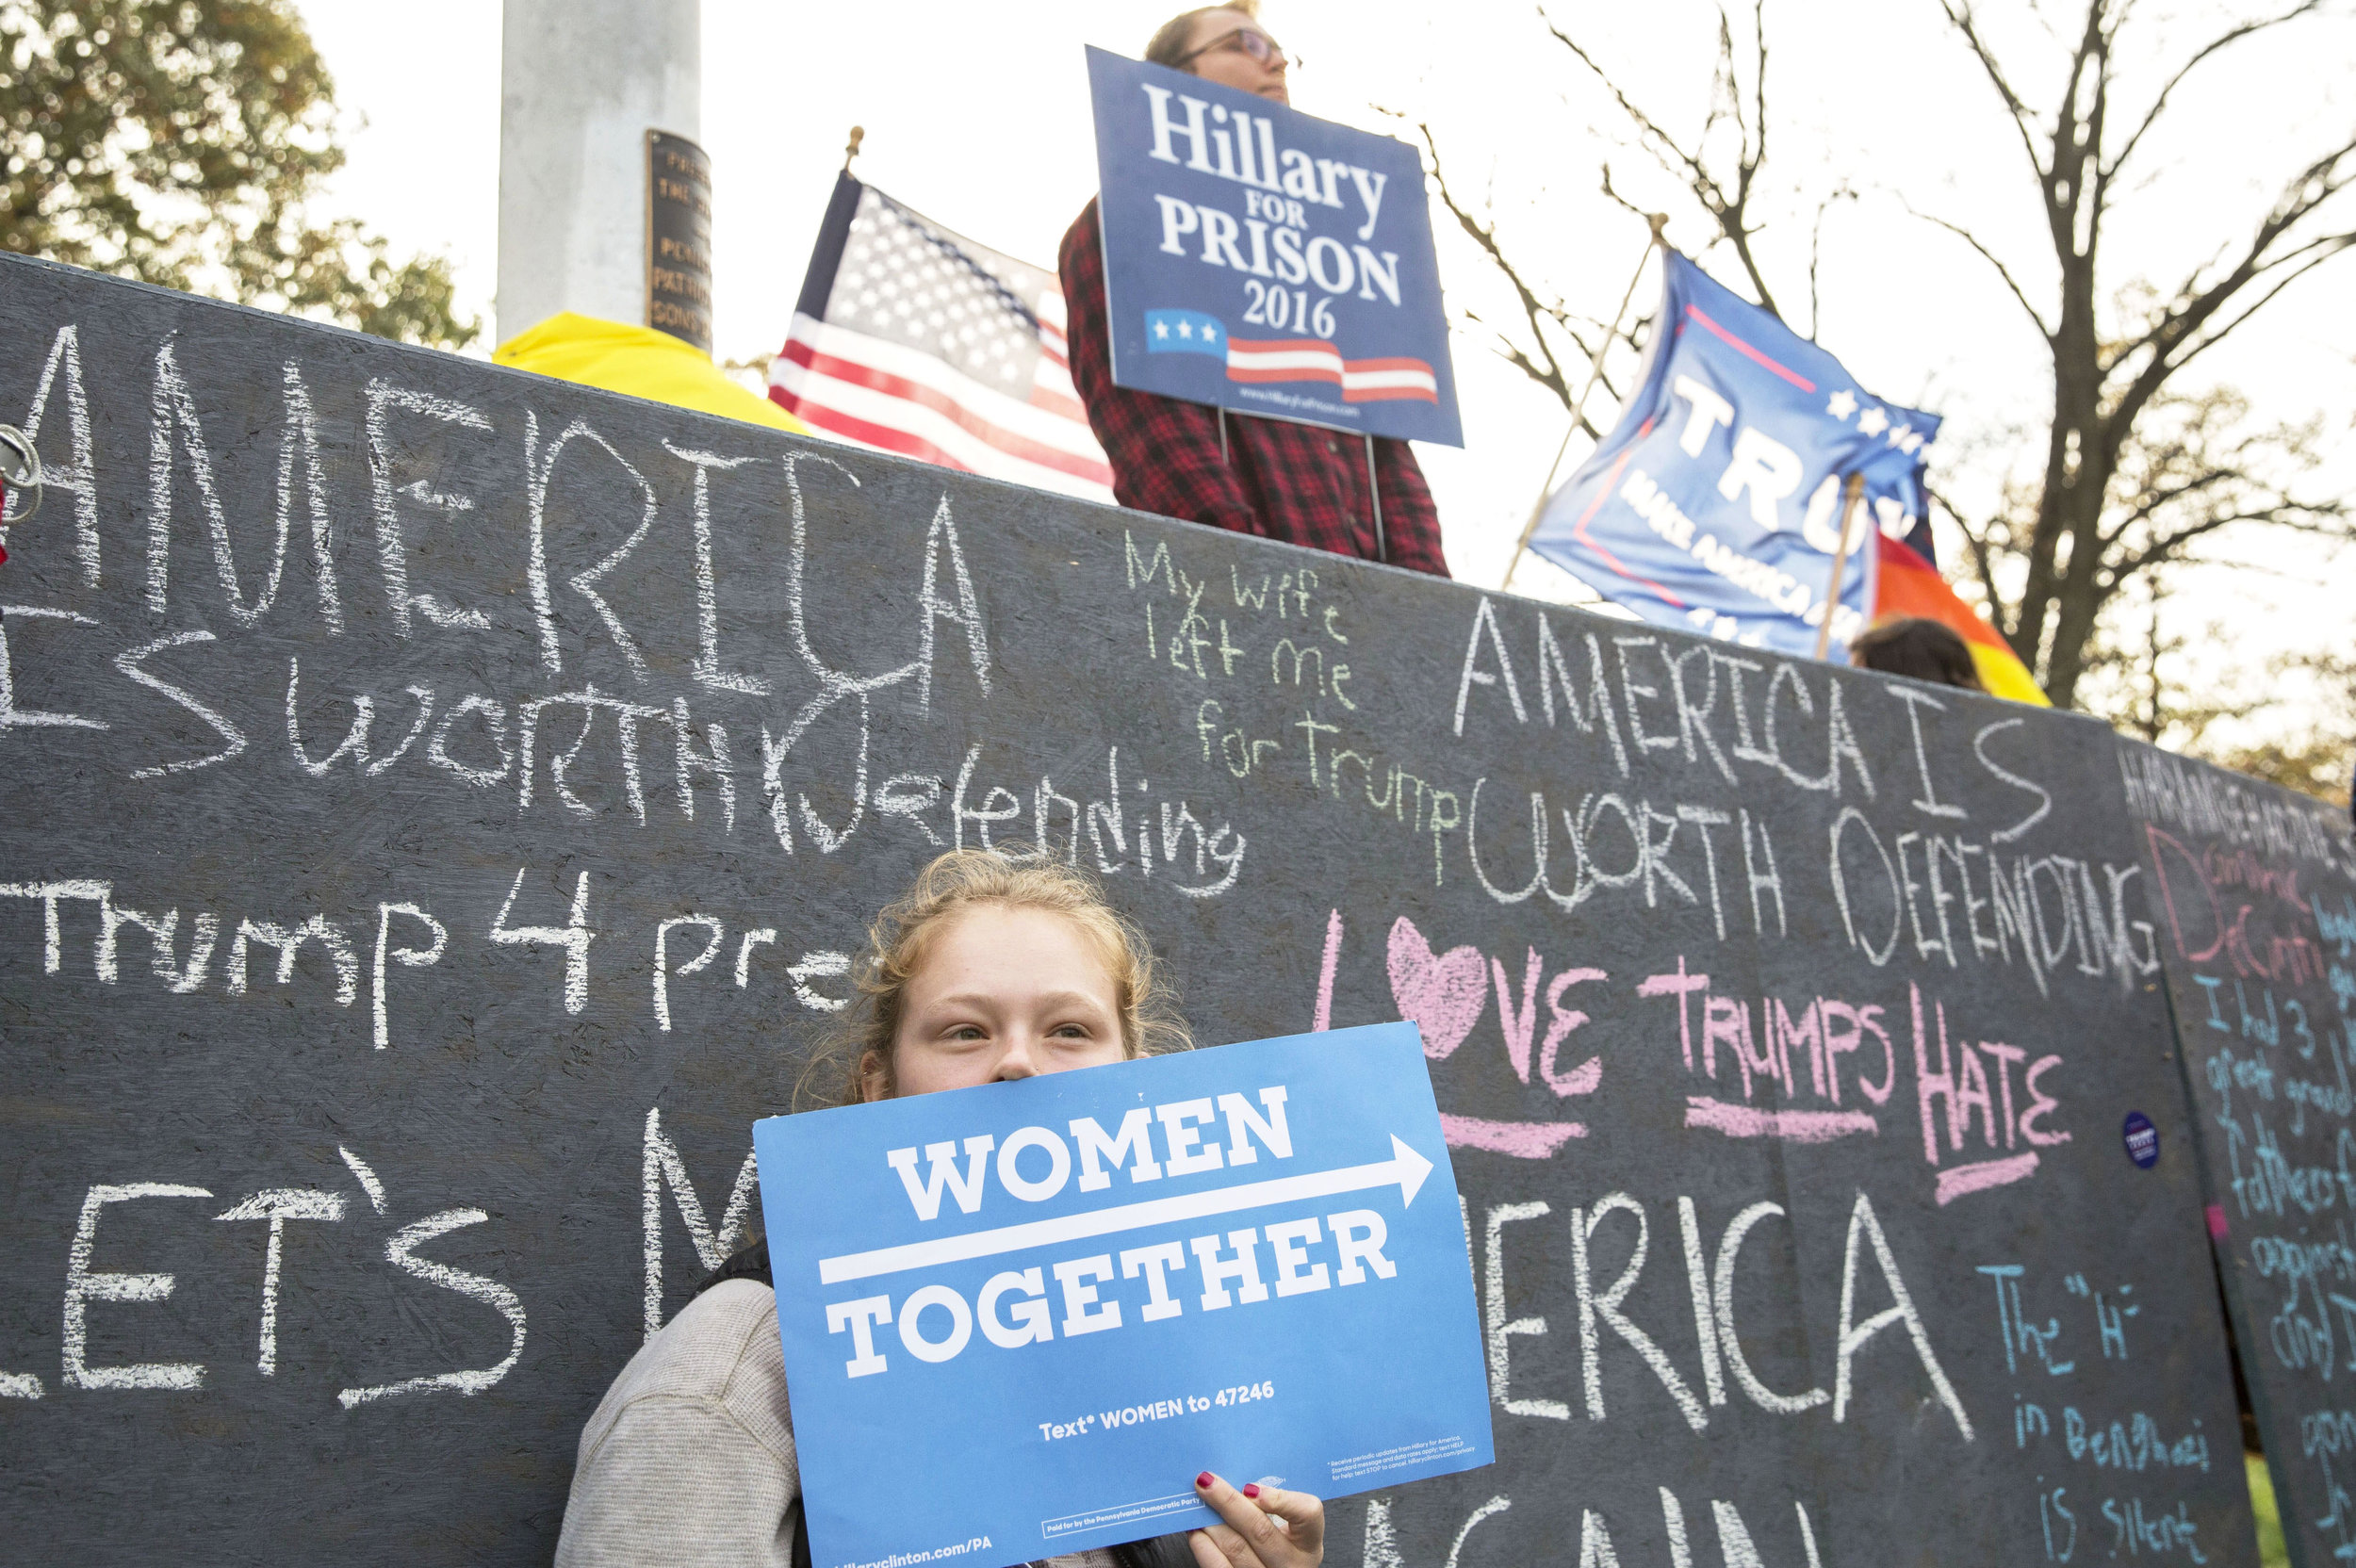 Hillary
FOR
PRISON
2016
www.HillaryForPrison.com
TRUMP
MAKE AMERICA
THE
SONS
AMERICA
IS WORTH
Defending
My wife
left me
for Trump
AMERICA IS
WORTH DEFENDING
Trump 4 pre
LOVE TRUMPS HATE
LET'S M
ERICA
GAIN
The "H"
in Benghazi
is silent
I had 3
great grand
fathers
against
and I
WOMEN
TOGETHER
Text* WOMEN to 47246
*Receive periodic updates from Hillary for America.
Standard message and data rates apply; text HELP
for help; text STOP to cancel. hillaryclinton.com/privacy
Paid for by the Pennsylvania Democratic Party
hillaryclinton.com/PA